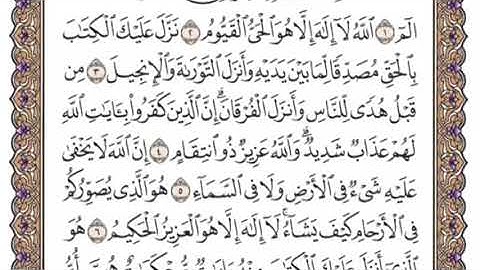 الٓمٓ ١ ٱللَّهُ لَآ إِلَٰهَ إِلَّا هُوَ ٱلۡحَيُّ ٱلۡقَيُّومُ ٢ نَزَّلَ عَلَيۡكَ ٱلۡكِتَٰبَ
بِٱلۡحَقِّ مُصَدِّقٗا لِّمَا بَيۡنَ يَدَيۡهِ وَأَنزَلَ ٱلتَّوۡرَىٰةَ وَٱلۡإِنجِيلَ ٣ مِن
قَبۡلُ هُدٗى لِّلنَّاسِ وَأَنزَلَ ٱلۡفُرۡقَانَۗ إِنَّ ٱلَّذِينَ كَفَرُواْ بِـَٔايَٰتِ ٱللَّهِ
لَهُمۡ عَذَابٞ شَدِيدٞۗ وَٱللَّهُ عَزِيزٞ ذُو ٱنتِقَامٍ ٤ إِنَّ ٱللَّهَ لَا يَخۡفَىٰ
عَلَيۡهِ شَيۡءٞ فِي ٱلۡأَرۡضِ وَلَا فِي ٱلسَّمَآءِ ٥ هُوَ ٱلَّذِي يُصَوِّرُكُمۡ
فِي ٱلۡأَرۡحَامِ كَيۡفَ يَشَآءُۚ لَآ إِلَٰهَ إِلَّا هُوَ ٱلۡعَزِيزُ ٱلۡحَكِيمُ ٦ هُوَ